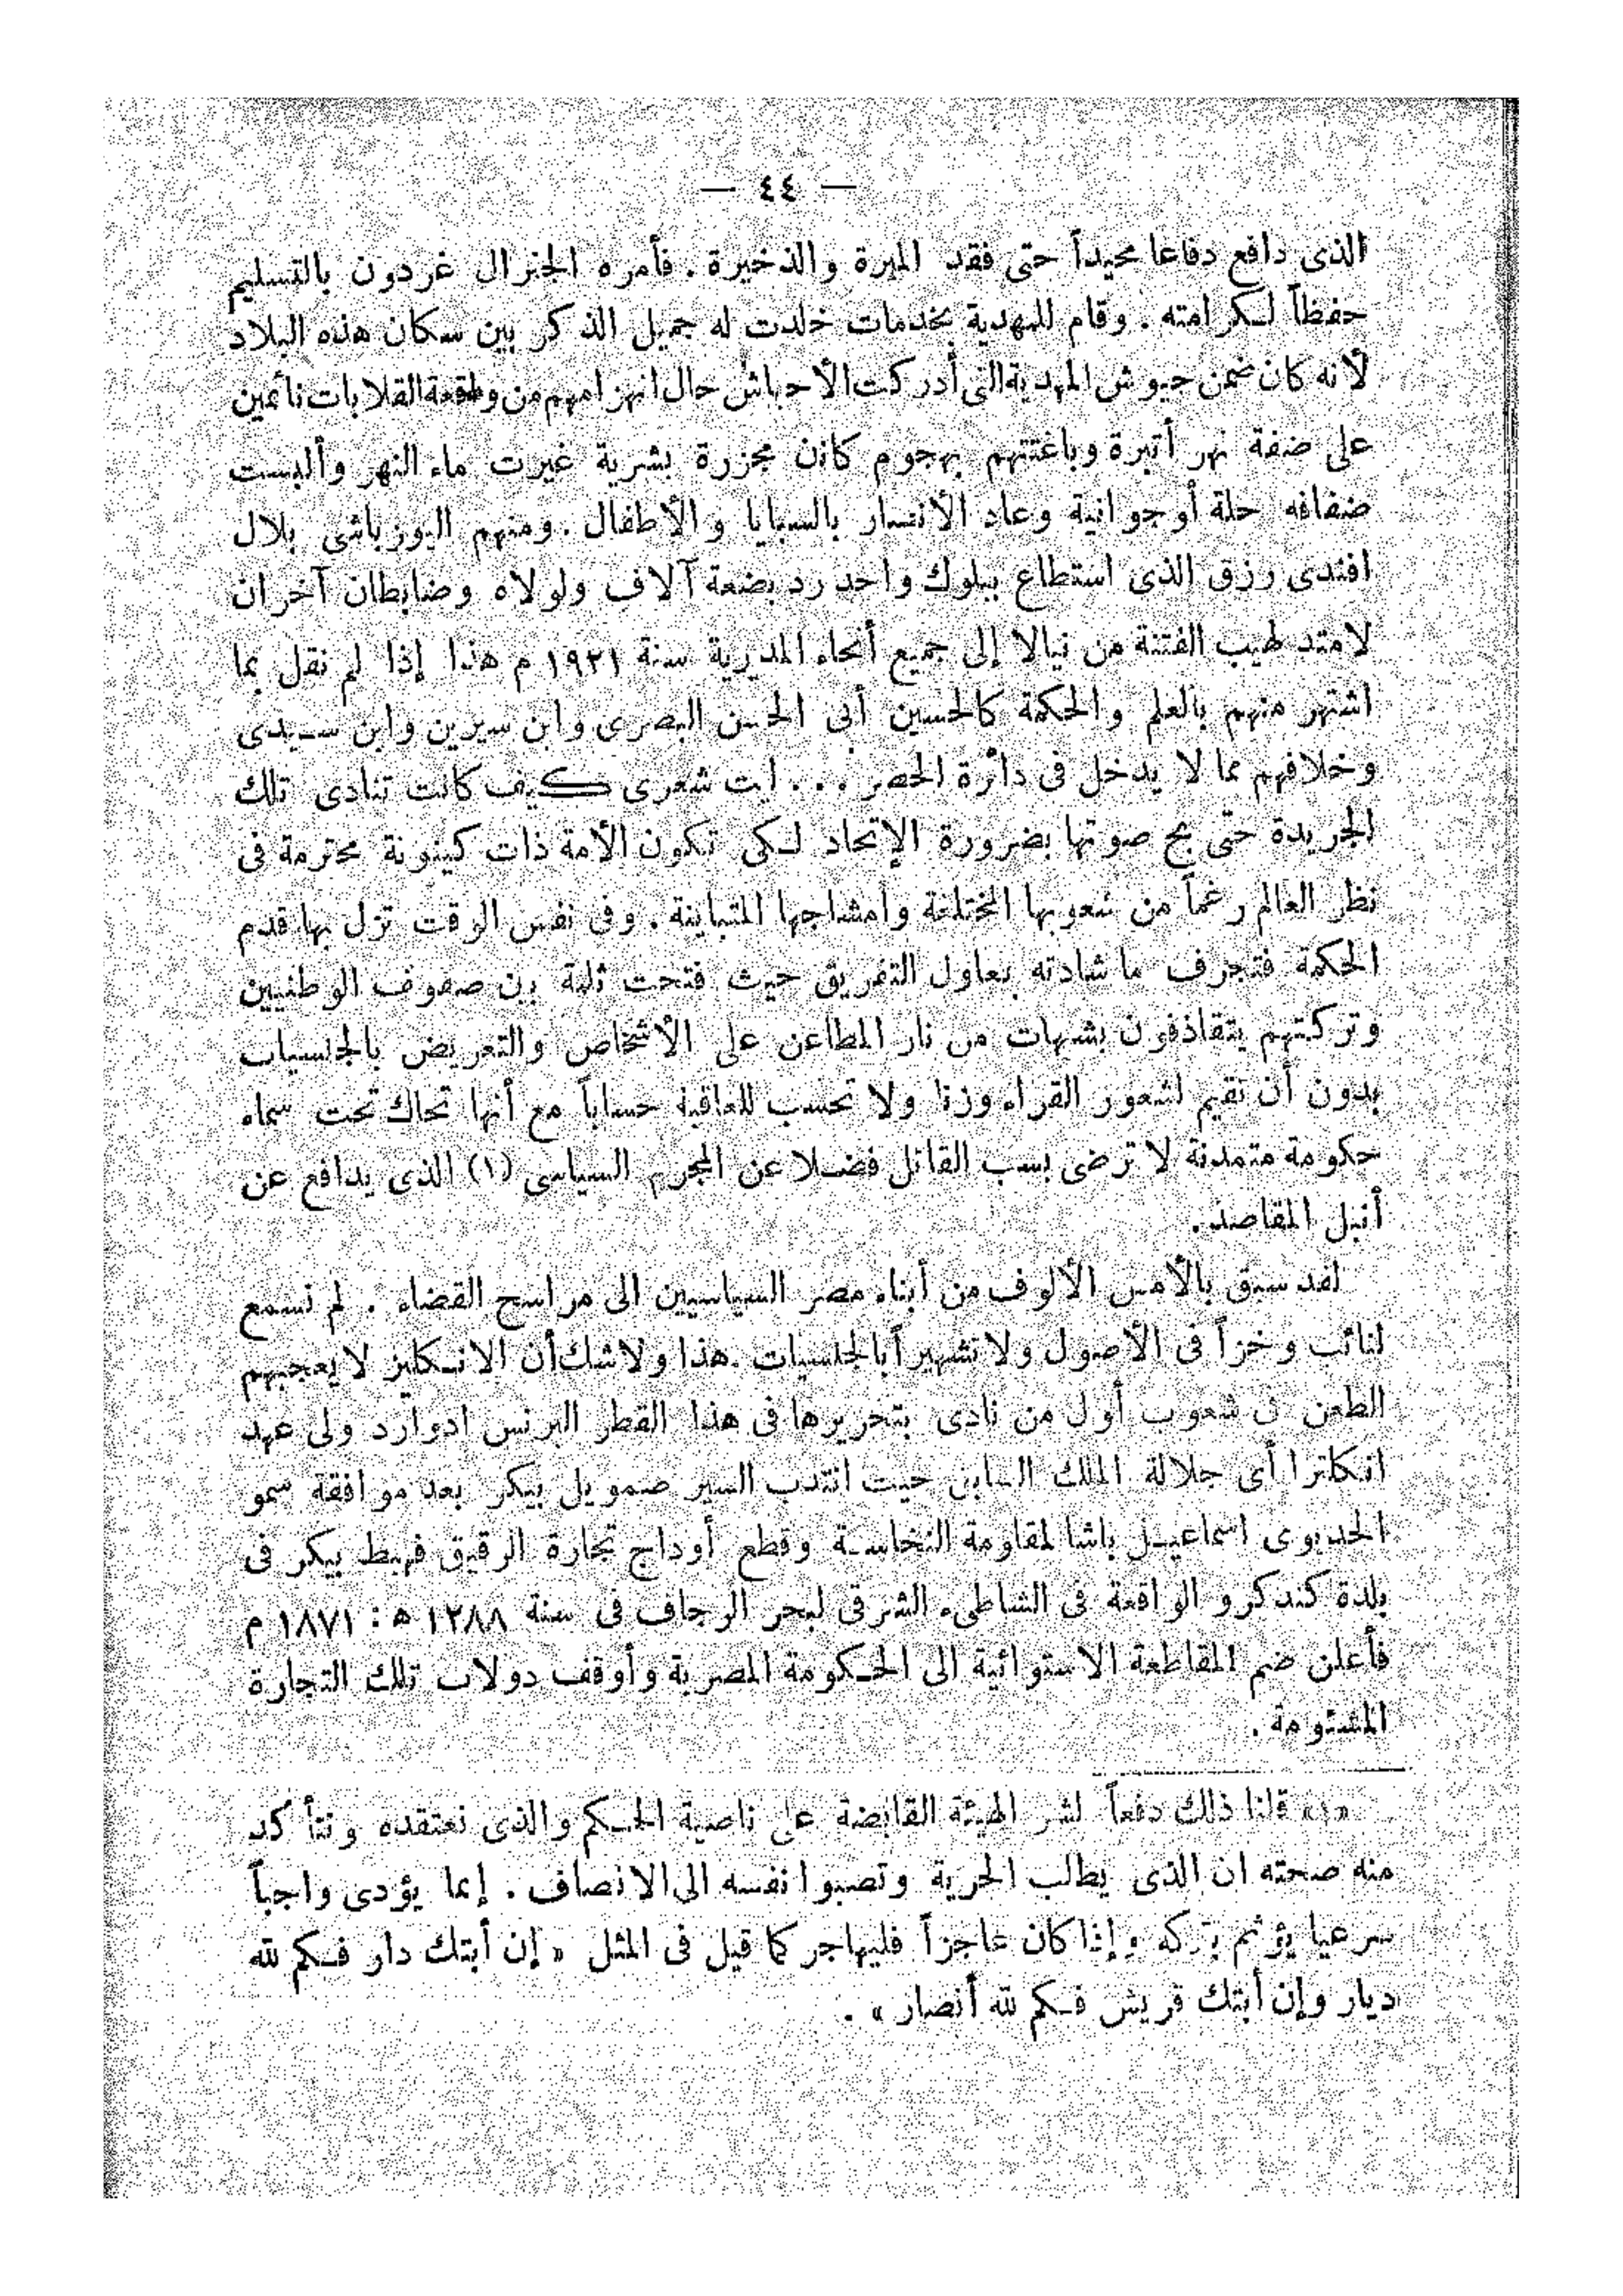 — ٤٤ —
الذى دافع دفاعا مجيداً حتى فقد الميرة والذخيرة . فأمره الجنرال غردون بالتسليم
حفظاً لكرامته . وقام للمهدية بخدمات خلدت له جميل الذكر بين سكان هذه البلاد
لأنه كان ضمن جيوش المهدية التى أدركت الأحباش حال انهزامهم من وقعة القلابات نائمين
على ضفة نهر أتبرة وباغتتهم بهجوم كانن مجزرة بشرية غيرت ماء النهر وألبست
ضفافه حلة أوجوانية وعاد الأنصار بالسبايا والأطفال . ومنهم اليوزباشى بلال
افندى رزق الذى استطاع ببلوك واحد رد بضعة آلاف ولولاه وضابطان آخران
لامتد لهيب الفتنة من نيالا إلى جميع أنحاء المديرية سنة ١٩٢١ م هذا إذا لم نقل بما
اشتهر منهم بالعلم والحكمة كالحسين أبى الحسن البصرى وابن سيرين وابن سيدى
وخلافهم مما لا يدخل فى دائرة الحصر . . . ليت شعرى كيف كانت تنادى تلك
الجريدة حتى بح صوتها بضرورة الإتحاد لكى تكون الأمة ذات كينونة محترمة فى
نظر العالم رغماً من شعوبها المختلفة وامشاجها المتباينة . وفى نفس الوقت تزل بها قدم
الحكمة فتجرف ما شادته بمعاول التفريق حيث فتحت ثلمة بين صفوف الوطنيين
وتركتهم يتقاذفون بشهات من نار المطاعن على الأشخاص والتعريض بالجنسيات
بدون أن تقيم لشعور القراء وزنا ولا تحسب للعاقبة حساباً مع أنها تحاك تحت سماء
حكومة متمدنة لا ترضى بسب القاتل فضلا عن المجرم السياسى (١) الذى يدافع عن
أنبل المقاصد .
لقد سبق بالأمس الألوف من أبناء مصر السياسيين الى مراسح القضاء . لم نسمع
لنائب وخزاً فى الأصول ولا تشهيراً بالجنسيات . هذا ولا شك أن الانكليز لا يعجبهم
الطعن فى شعوب أول من نادى بتحريرها فى هذا القطر البرنس ادوارد ولى عهد
انكلترا أى جلالة الملك السابق حيث انتدب السير صمويل بيكر بعد موافقة سمو
الخديوى اسماعيل باشا لمقاومة النخاسة وقطع أوداج تجارة الرقيق فهبط بيكر فى
بلدة كندكرو الواقعة فى الشاطىء الشرقى لبحر الرجاف فى سنة ١٢٨٨ ه : ١٨٧١ م
فأعلن ضم المقاطعة الاستوائية الى الحكومة المصرية وأوقف دولاب تلك التجارة
المشئومة .
«١» قلنا ذلك دفعاً لشر الهيئة القابضة على ناصية الحكم والذى نعتقده ونتأكد
منه صحته ان الذى يطالب الحرية وتصبوا نفسه الى الانصاف . إنما يؤدى واجباً
شرعيا يؤثم بتركه وإذا كان عاجزاً فليهاجر كما قيل فى المثل « إن أبتك دار فكم لله
ديار وإن أبتك قريش فكم لله أنصار » .